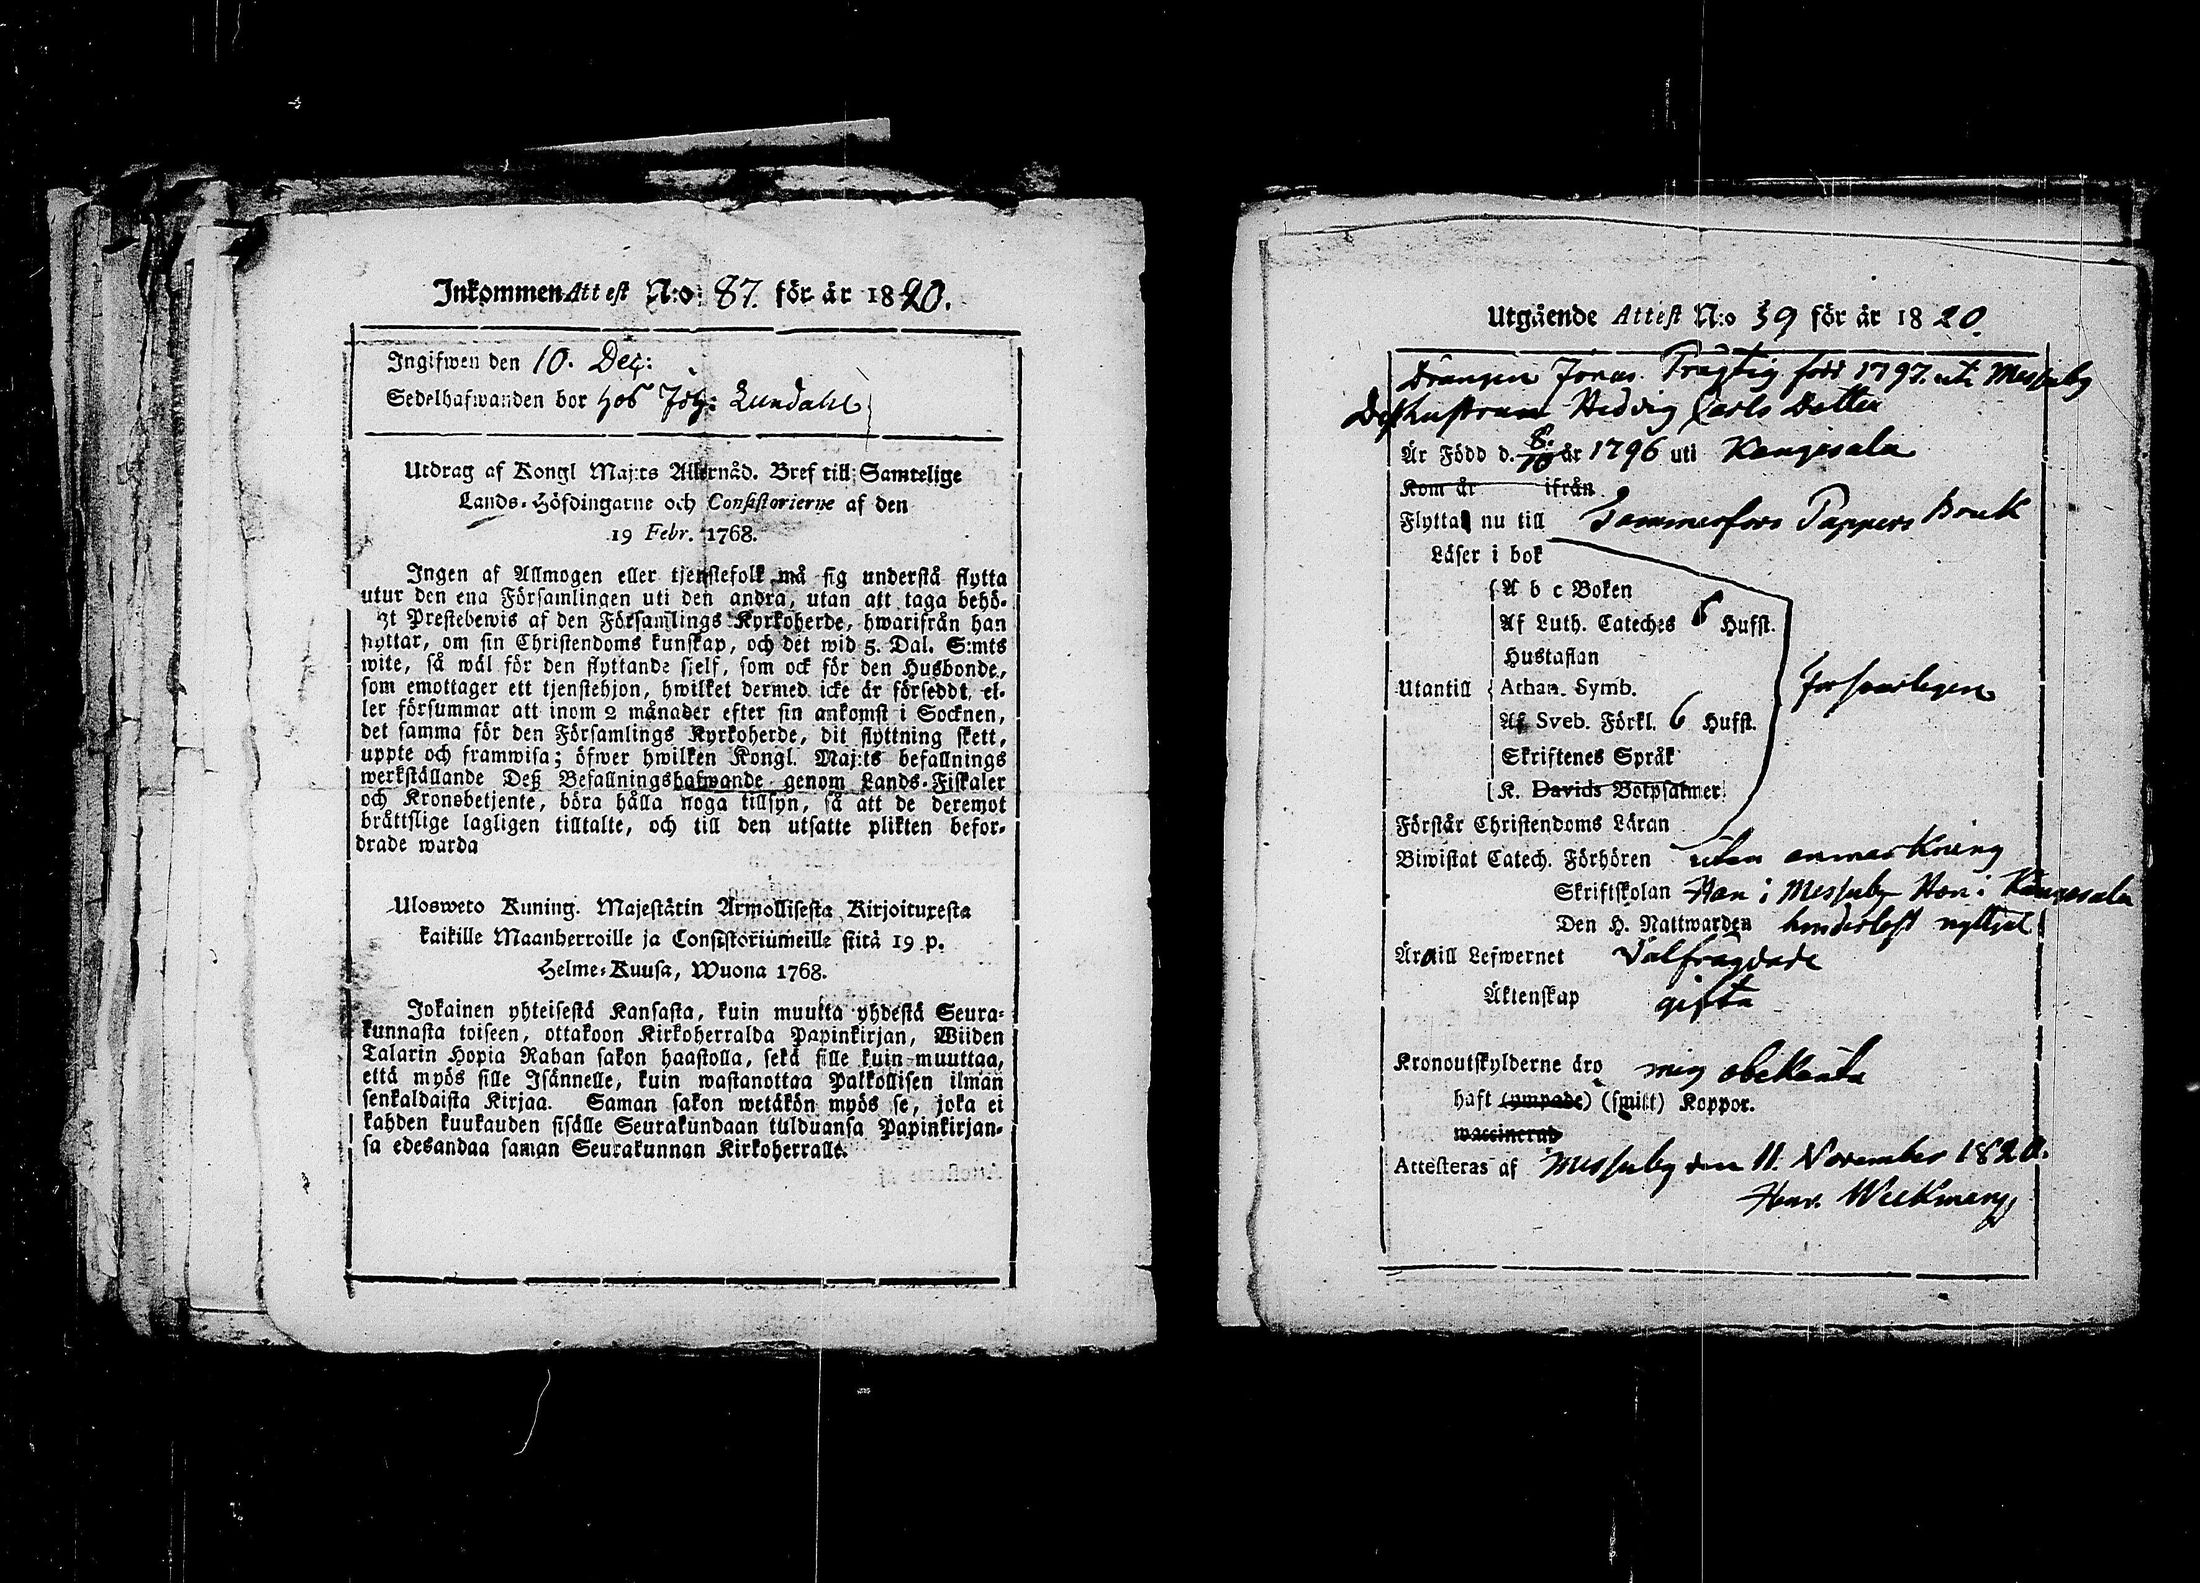 Inkommen Attest N:o 87. för år 1820.
Ingifwen den 10. Dec:
Sedelhafwanden bor hos Joh: Lundahl
Utdrag af Kongl Maj:ts Allernåd. Bref till Samtelige
Lands-Höfdingarne och Consistorierne af den
19 Febr. 1768.
Ingen af Allmogen eller tjenstefolk må sig understå flytta
utur den ena Församlingen uti den andra, utan att taga behö-
gt Prestebewis af den Församlings Kyrkoherde, hwarifrån han
flyttar, om sin Christendoms kunskap, och det wid 5. Dal. S:mts
wite, så wäl för den flyttande sjelf, som ock för den Husbonde,
som emottager ett tjenstehjon, hwilket dermed icke är förseddt, el-
ler försummar att inom 2 månader efter sin ankomst i Socknen,
det samma för den Församlings Kyrkoherde, dit flyttning skett,
uppte och framwisa; öfwer hwilken Kongl. Maj:ts befallnings
werkställande Deß Befallningshafwande genom Lands-Fiskaler
och Kronobetjente, böra hålla noga tillsyn, så att de deremot
bråttslige lagligen tilltalte, och till den utsatte plikten befor-
drade warda
Ulosweto Kuning. Majestätin Armollisesta Kirjoituxesta
kaikille Maanherroille ja Consistoriumeille siitä 19 p.
Helme-Kuusa, Wuona 1768.
Jokainen yhteisestä Kansasta, kuin muutta yhdestä Seura-
kunnasta toiseen, ottakoon Kirkoherralda Papinkirjan, Wiiden
Talarin Hopia Rahan sakon haastolla, sekä sille kuin muuttaa,
että myös sille Isännelle, kuin wastanottaa Palkollisen ilman
senkaldaista Kirjaa. Saman sakon wetäkön myös se, joka ei
kahden kuukauden sisälle Seurakundaan tulduansa Papinkirjan-
sa edesandaa saman Seurakunnan Kirkoherralle.
Utgående Attest N:o 39 för år 1820.
Drängen Jonas Prågtig född 1797. uti Messuby
Dess hustrun Hedvig Carls Dotter
Är Född d. 8./10 år 1796 uti Kangasala
Kom år ifrån
Flytta nu till Tammerfors Pappers Bruk
Läser i bok
A b c Boken
Af Luth. Cateches 6 Hufst.
Hustaflan
Utantill Athan. Symb. försvarligen
Af Sveb. Förkl. 6 Hufst.
Skriftenes Språk
K. Davids Botpsalmer
Förstår Christendoms Läran
Biwistat Catech. Förhören utan anmärkning
Skriftskolan Han i Messuby Hon i Kangasala
Den H. Nattwarden hinderlöst nyttjat
Äro till Lefwernet Välfrägdade
Äktenskap gifta
Kronoutskylderne äro mig obekanta
haft (ympade) (smitt) Koppor.
waccinerad
Attesteras af Messuby den 11. November 1820.
Henr. Weckman